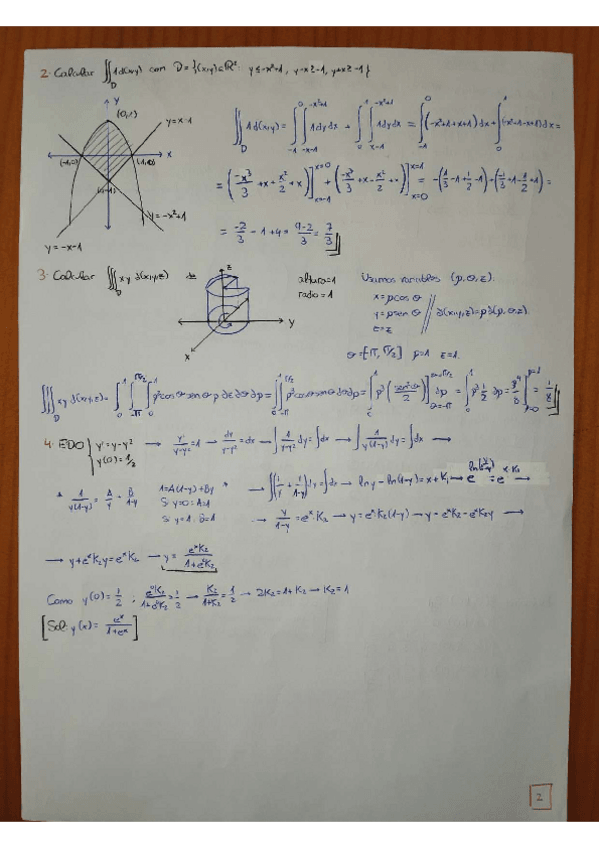 2. Calcular ∬_D 1 d(x,y) con D = {(x,y)∈ℝ²: y≤-x²+1, y-x≥-1, y+x≥-1}
y
(0,1)
y=x-1
(-1,0)
(1,0)
x
(0,-1)
y=-x²+1
y=-x-1
∬_D 1 d(x,y) = ∫_{-1}^{0} ∫_{-x-1}^{-x²+1} 1 dy dx + ∫_0^1 ∫_{x-1}^{-x²+1} 1 dy dx = ∫_{-1}^0 (-x²+1+x+1) dx + ∫_0^1 (-x²+1-x+1) dx =
= (-x³/3 + x + x²/2 + x)]_{x=-1}^{x=0} + (-x³/3 + x - x²/2 + x)]_{x=0}^{x=1} = -(1/3 - 1 + 1/2 - 1) + (-1/3 + 1 - 1/2 + 1) =
= -2/3 - 1 + 4 = 9-2/3 = 7/3
3. Calcular ∭_D xy d(x,y,z)
z
y
x
altura=1
radio=1
Usamos variables (ρ,θ,z).
x=ρcos θ
y=ρsen θ // d(x,y,z)=ρ d(ρ,θ,z).
z=z
θ=[-π, π/2] ρ=1 z=1.
∭_D xy d(x,y,z) = ∫_0^1 ∫_{-π}^{π/2} ∫_0^1 ρ²cosθ senθ ρ dz dθ dρ = ∫_0^1 ∫_{-π}^{π/2} ρ³cosθ senθ dθ dρ = ∫_0^1 ρ³ (sen²θ/2)]_{θ=-π}^{θ=π/2} dρ = ∫_0^1 ρ³ 1/2 dρ = ρ⁴/8]_{ρ=0}^{ρ=1} = 1/8
4. EDO { y'=y-y² → y'/y-y² = 1 → dy/y-y² = dx → ∫ 1/y-y² dy = ∫dx → ∫ 1/y(1-y) dy = ∫dx →
y(0)=1/2
* 1/y(1-y) = A/y + B/1-y 1=A(1-y)+By *
Si y=0: A=1
Si y=1: B=1
→ ∫(1/y + 1/1-y) dy = ∫dx → ln y - ln(1-y) = x+K₁ → e^{ln(y/1-y)} = e^{x+K₁} →
→ y/1-y = e^x·K₂ → y=e^x K₂(1-y) → y=e^x K₂ - e^x K₂ y →
→ y+e^x K₂ y = e^x K₂ → y = e^x K₂/1+e^x K₂
Como y(0)=1/2 ; e⁰K₂/1+e⁰K₂ = 1/2 → K₂/1+K₂ = 1/2 → 2K₂=1+K₂ → K₂=1
[Sol: y(x)= e^x/1+e^x]
2